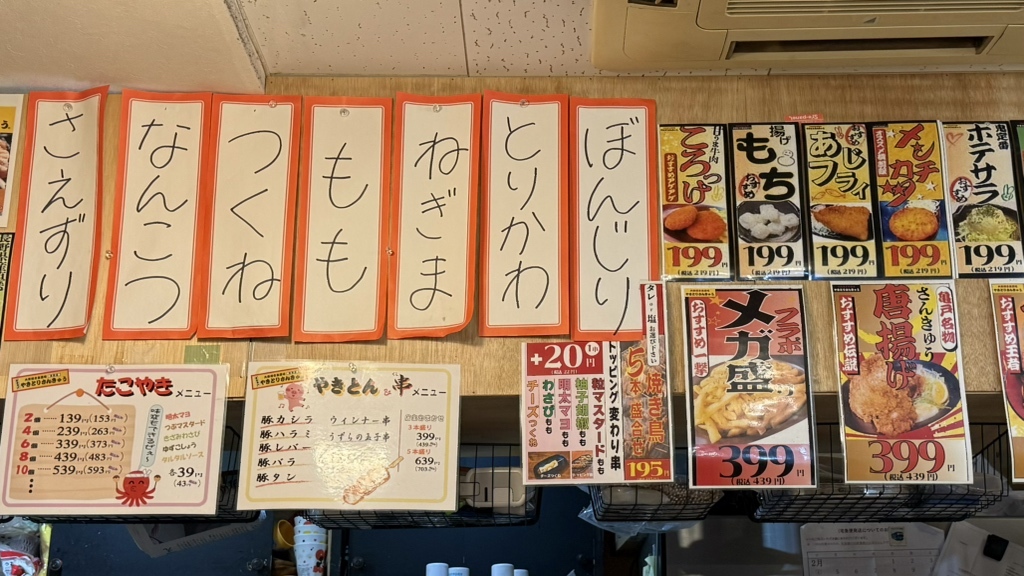 ぼんじり
とりかわ
ねぎま
もも
つくね
なんこつ
さえずり
ころっけ
おすすめアゲアゲ
199円
(税込 219円)
揚げもち
199円
(税込 219円)
あじフライ
199円
(税込 219円)
メンチカツ
199円
(税込 219円)
鬼定番
ポテサラ
199円
(税込 219円)
たこやき
メニュー
2個……139円(153円)
4個……239円(263円)
6個……339円(373円)
8個……439円(483円)
10個……539円(593円)
明太マヨ
つぶマスタード
きざみわさび
ゆずこしょう
タルタルソース
各39円
(43円)
やきとん&串メニュー
豚カシラ
豚ハラミ
豚レバー
豚バラ
豚タン
ウィンナー串
うずらの玉子串
3本盛り
399円
5本盛り
639円
+20円
(税込 22円)
トッピング変わり串
粒マスタードもも
柚子胡椒もも
明太マヨもも
わさびもも
チーズつくね
タレor塩お選び下さい
焼き鳥
5本盛合せ
195円
おすすめ一撃
フラポ
メガ盛
399円
(税込 439円)
亀戸名物
さんきゅう
唐揚げ
おすすめ伝説
399円
(税込 439円)
おすすめ王者